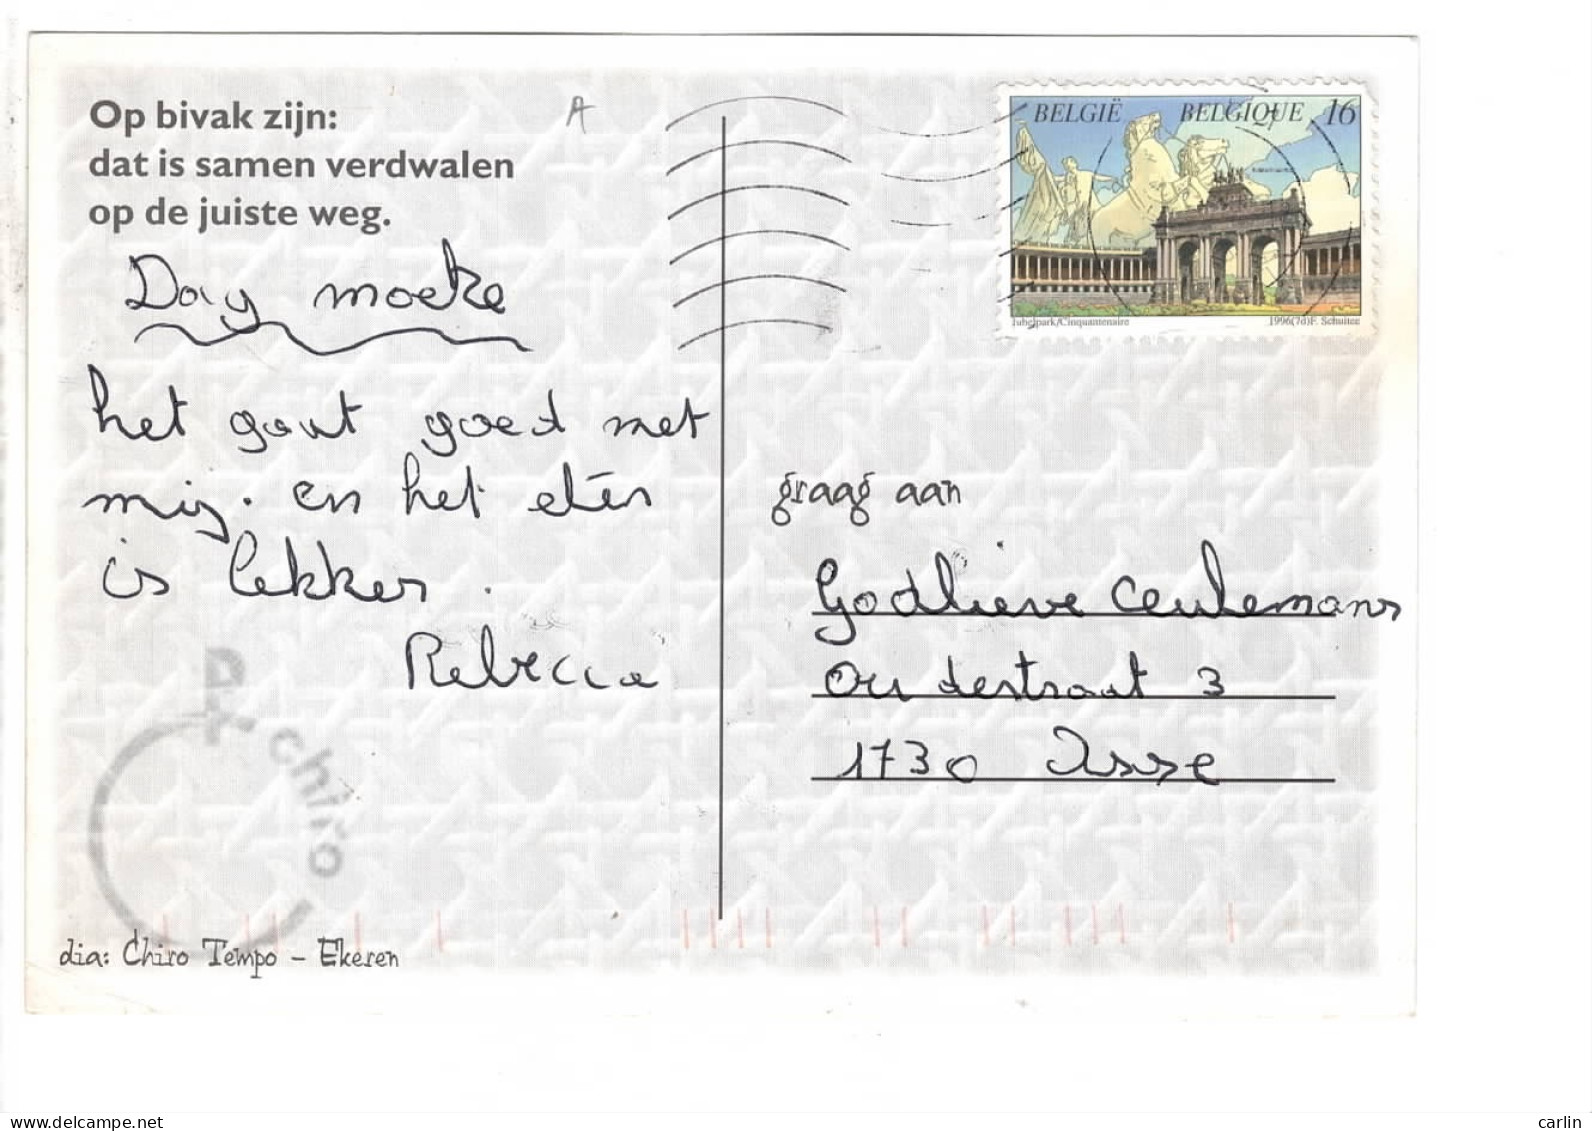 Op bivak zijn:
dat is samen verdwalen
op de juiste weg.
A
Day moeke
het gaat goed met
mij. en het eten
is lekker.
Rebecca
chiro
dia: Chiro Tempo – Ekeren
BELGIË BELGIQUE 16
Jubelpark/Cinquantenaire 1996(7d)F. Schuiten
graag aan
Godlieve Ceulemans
Oudestraat 3
1730 Asse
carlin